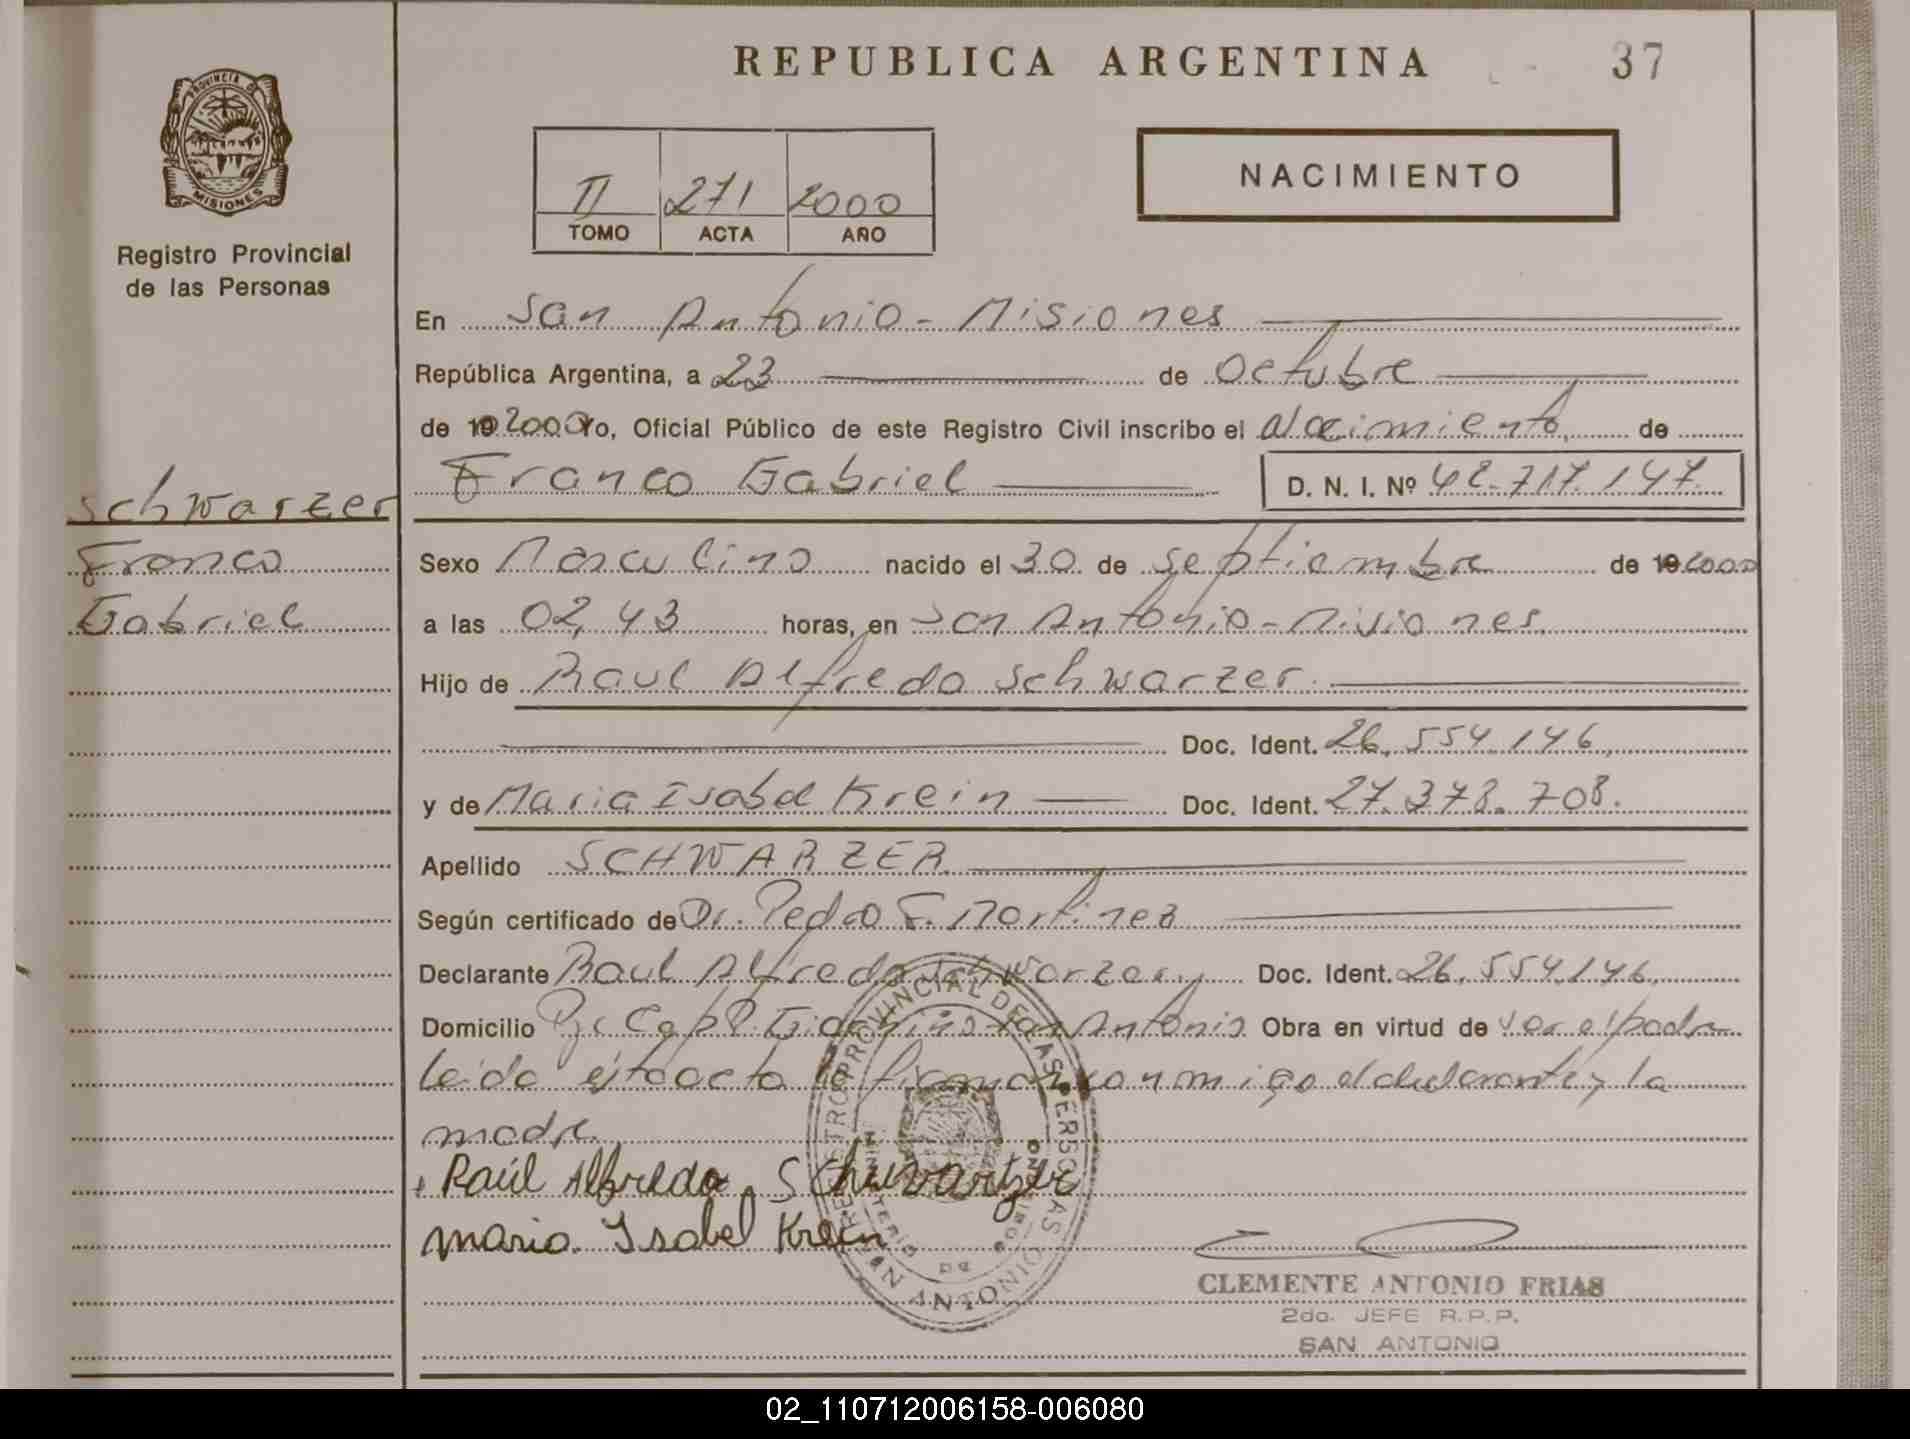 REPUBLICA ARGENTINA 37
PROVINCIA DE
MISIONES
Registro Provincial
de las Personas
II 271 2000
TOMO ACTA AÑO
NACIMIENTO
En San Antonio - Misiones
República Argentina, a 23 de Octubre
de 19 2000 Yo, Oficial Público de este Registro Civil inscribo el Nacimiento de
Franco Gabriel D. N. I. Nº 42.717.147
Schwarzer
Franco
Gabriel
Sexo Masculino nacido el 30 de septiembre de 19 2000
a las 02,43 horas, en San Antonio - Misiones
Hijo de Raul Alfredo Schwarzer
Doc. Ident. 26.554.146
y de Maria Isabel Krein Doc. Ident. 27.378.708.
Apellido SCHWARZER
Según certificado de Dr. Pedro F. Martinez
Declarante Raul Alfredo Schwarzer Doc. Ident. 26.554.146
Domicilio San Antonio Obra en virtud de ser el padre
leida esta acta la firman conmigo el declarante y la
madre
Raúl Alfredo Schwartzer
maria Isabel Krein
REGISTRO PROVINCIAL DE LAS PERSONAS
MINISTERIO DE GOBIERNO
SAN ANTONIO
CLEMENTE ANTONIO FRIAS
2do. JEFE R.P.P.
SAN ANTONIO
02_110712006158-006080